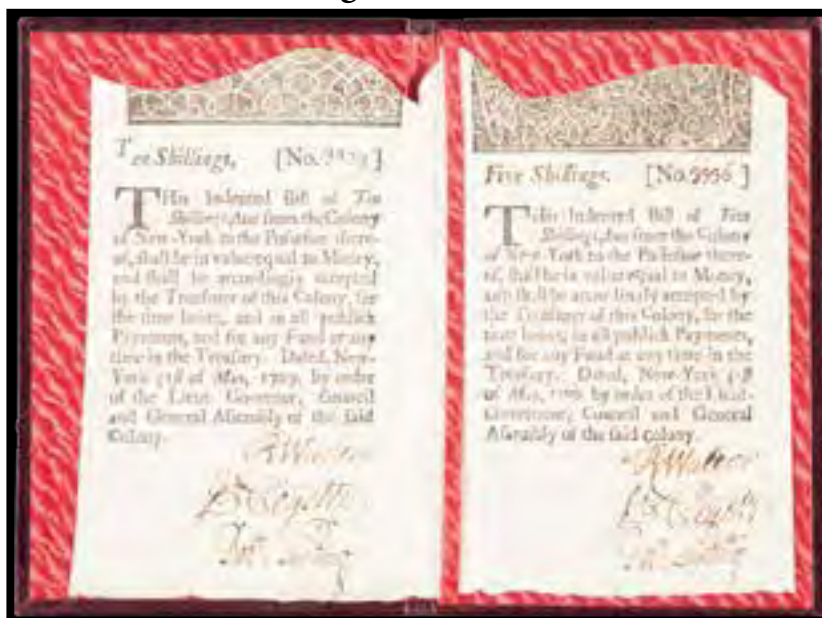 Ten Shillings, [No.
THis Indented Bill of Ten
Shillings, due from the Colony
of New-York to the Possessor there-
of, shall be in value equal to Money,
and shall be accordingly accepted
by the Treasurer of this Colony, for
the time being, in all publick
Payments, and for any Fund at any
time in the Treasury. Dated, New-
York 31st of May, 1709. by order
of the Lieut. Governor, Council
and General Assembly of the said
Colony.
Five Shillings. [No.9996]
THis Indented Bill of Five
Shillings, due from the Colony
of New-York to the Possessor there-
of, shall be in value equal to Money,
and shall be accordingly accepted by
the Treasurer of this Colony, for the
time being, in all publick Payments,
and for any Fund at any time in the
Treasury. Dated, New-York
of May, 1709. by order of the Lieut.
Governour, Council and General
Assembly of the said Colony.